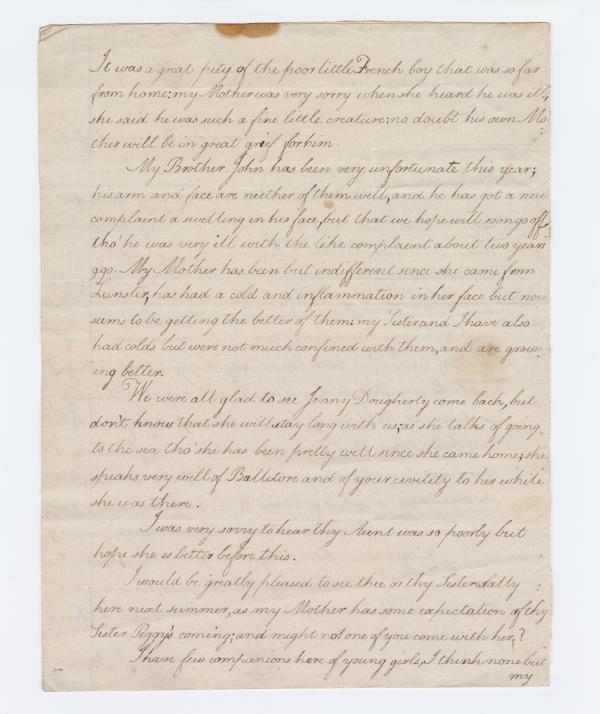 It was a great pity of the poor little French boy that was so far
from home: my Mother was very sorry when she heard he was ill,
she said he was such a fine little creature: no doubt his own Mo-
ther will be in great grief for him.
My Brother John has been very unfortunate this year;
his arm and face are neither of them well, and he has got a new
complaint a swelling in his face, but that we hope will soon go off
tho' he was very ill with the like complaint about two years
ago. My Mother has been but indifferent since she came from
Lunster, has had a cold and inflammation in her face but now
seems to be getting the better of them: my Sister and I have also
had colds but were not much confined with them, and are grow-
ing better.
We were all glad to see Jenny Dougherty come back, but
don't know that she will stay long with us; as she talks of going
to the sea tho' she has been pretty well since she came home; she
speaks very well of Ballitore and of your civility to her while
she was there.
I was very sorry to hear thy Aunt was so poorly but
hope she is better before this.
I would be greatly pleased to see thee or thy Sister Sally
here next summer, as my Mother has some expectation of thy
Sister Peggy's coming; and might not one of you come with her?
I have few companions here of young girls, I think none but
my